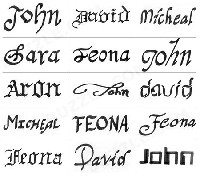 John David Micheal
Sara Feona John
Aron John david
Micheal FEONA Feona
Feona David John